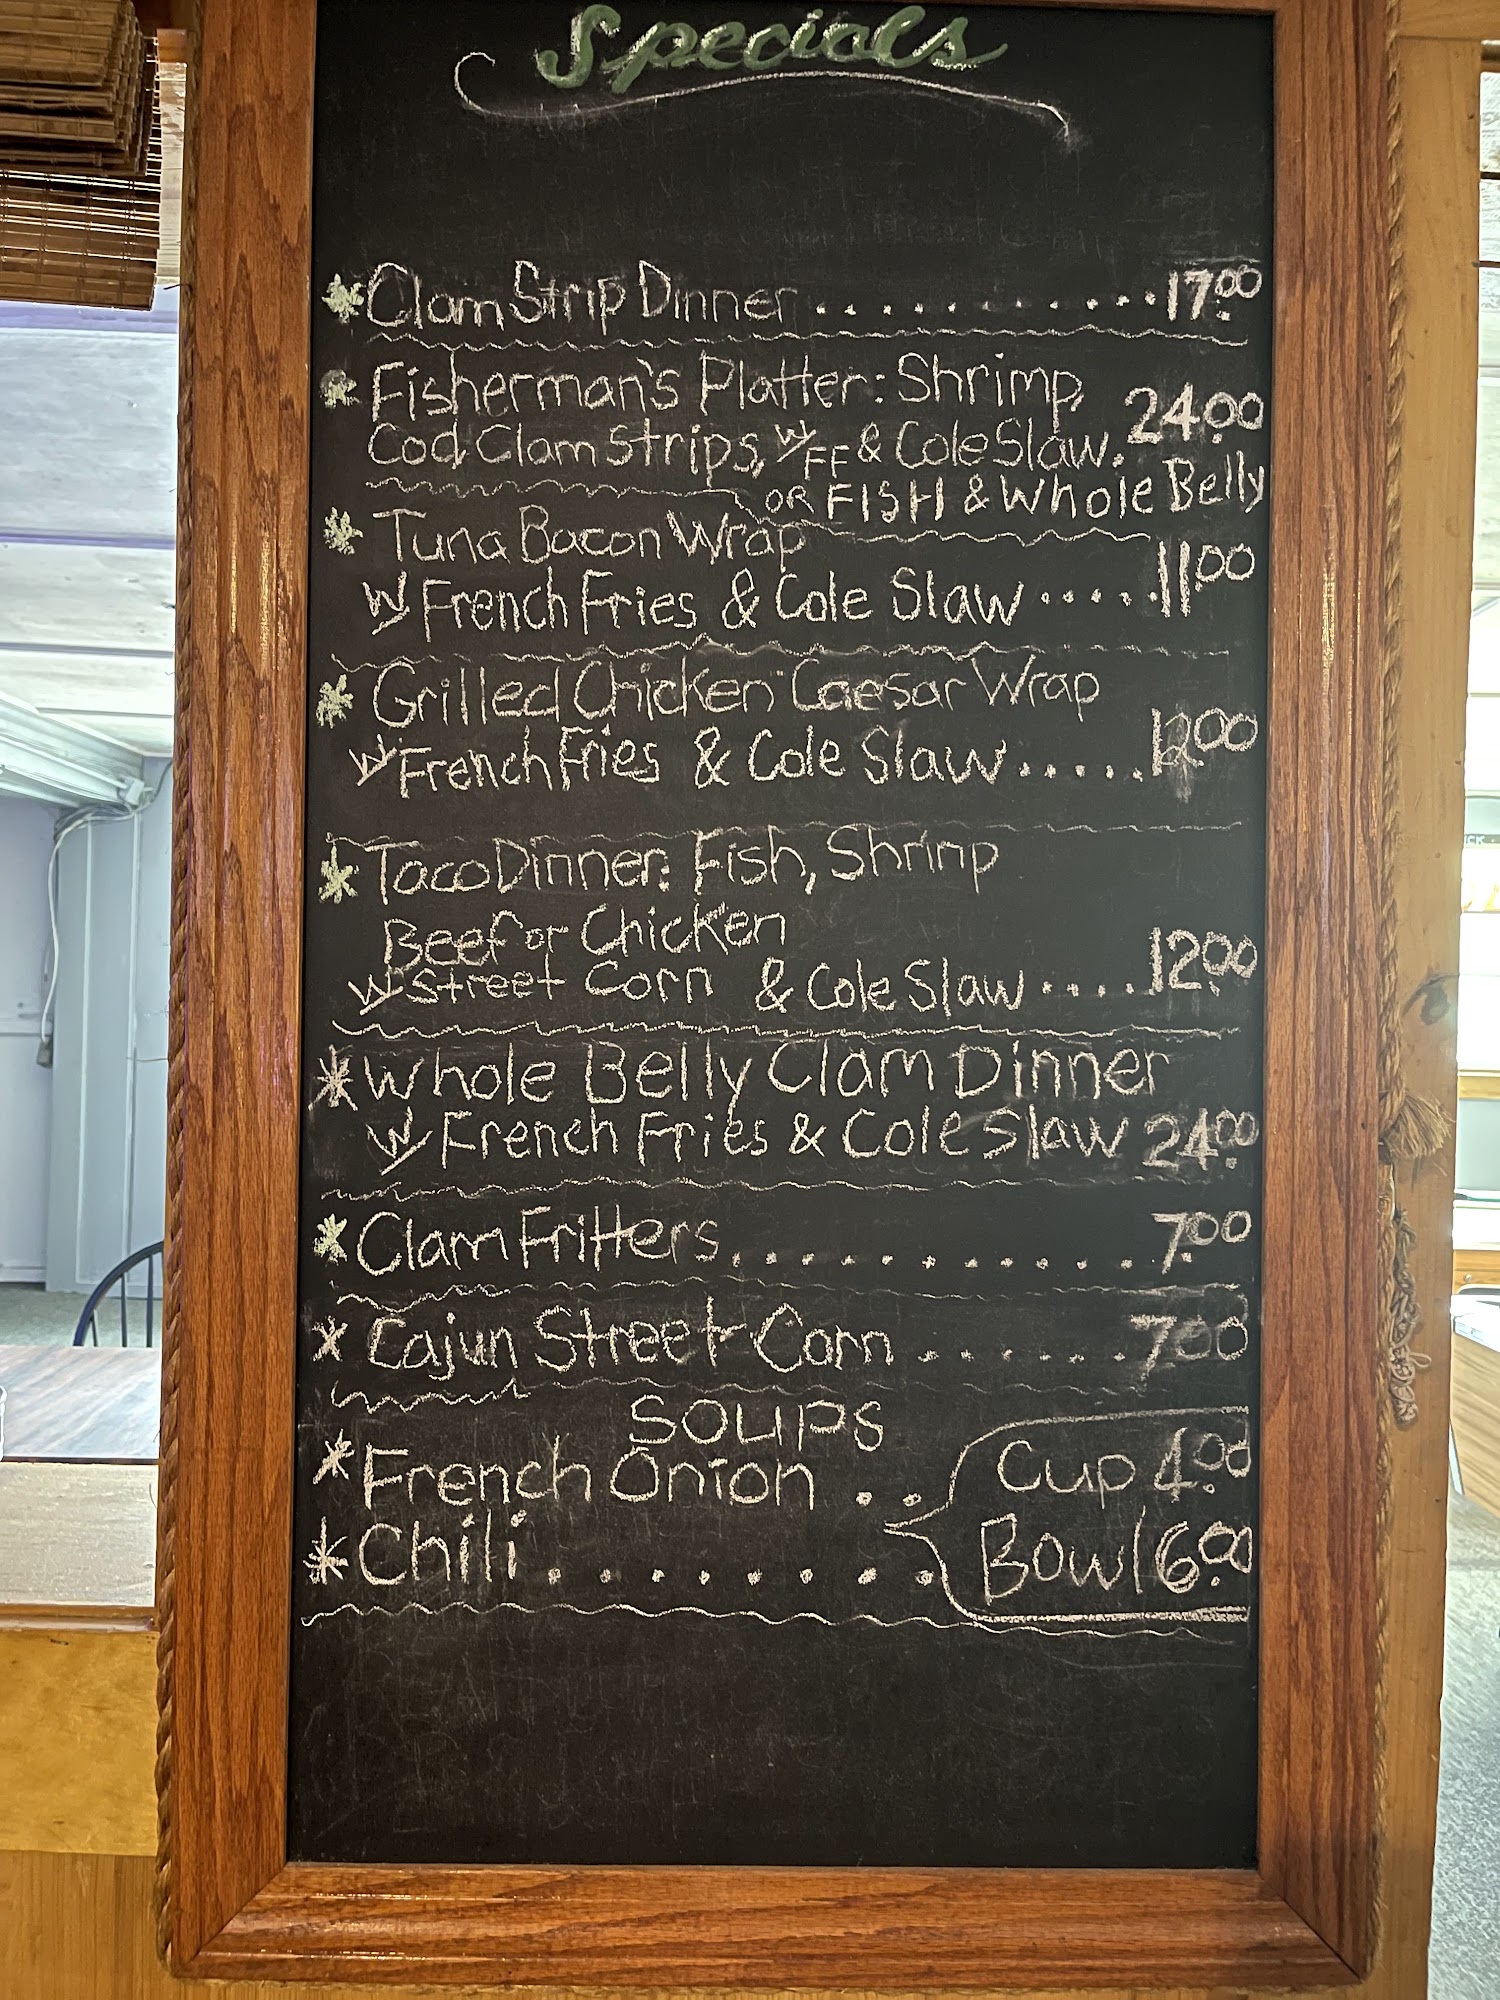 Specials
* Clam Strip Dinner . . . . . . . . . . . . 17.00
* Fisherman's Platter: Shrimp,
Cod, Clam Strips, w/ FF & Cole Slaw. 24.00
OR FISH & Whole Belly
* Tuna Bacon Wrap
w/ French Fries & Cole Slaw . . . . . 11.00
* Grilled Chicken Caesar Wrap
w/ French Fries & Cole Slaw . . . . . 12.00
* Taco Dinner: Fish, Shrimp
Beef or Chicken
w/ Street Corn & Cole Slaw . . . . . 12.00
* Whole Belly Clam Dinner
w/ French Fries & Cole Slaw 24.00
* Clam Fritters . . . . . . . . . . . . 7.00
* Cajun Street Corn . . . . . . 7.00
SOUPS
* French Onion . . Cup 4.00
* Chili . . . . . . . . Bowl 6.00